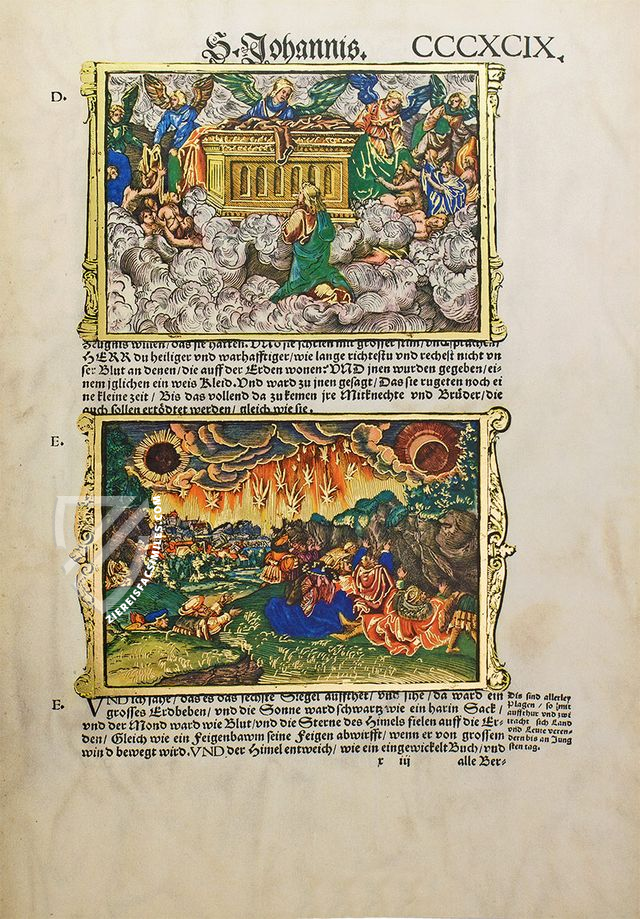 S. Johannis. CCCXCIX.
D.
Zeugnis willen/das sie hatten. Vnd sie schrien mit grosser stim/vnd sprachen/
HERR du heiliger vnd warhafftiger/wie lange richtestu vnd rechest nicht vn
ser Blut an denen/die auff der Erden wonen: VND jnen wurden gegeben/ei
nem jglichen ein weis Kleid. Vnd ward zu jnen gesagt/Das sie rugeten noch ei
ne kleine zeit/Bis das vollend da zu kemen jre Mitknechte vnd Brüder/die
auch sollen ertödtet werden/gleich wie sie.
E.
ZIEREISFACSIMILES.COM
E.
VND ich sahe/das es das sechste Siegel auffthet/vnd sihe/da ward ein
grosses Erdbeben/vnd die Sonne ward schwartz wie ein harin Sack/
vnd der Mond ward wie Blut/vnd die Sterne des Himels fielen auff die Er-
den/Gleich wie ein Feigenbawm seine Feigen abwirfft/wenn er von grossem
wind bewegt wird. VND der Himel entweich/wie ein eingewickelt Buch/vnd
x iij alle Ber-
Dis sind allerley
Plagen/so mit
auffrhur vnd zwi
tracht sich Land
vnd Leute veren-
dern bis an Jung
sten tag.